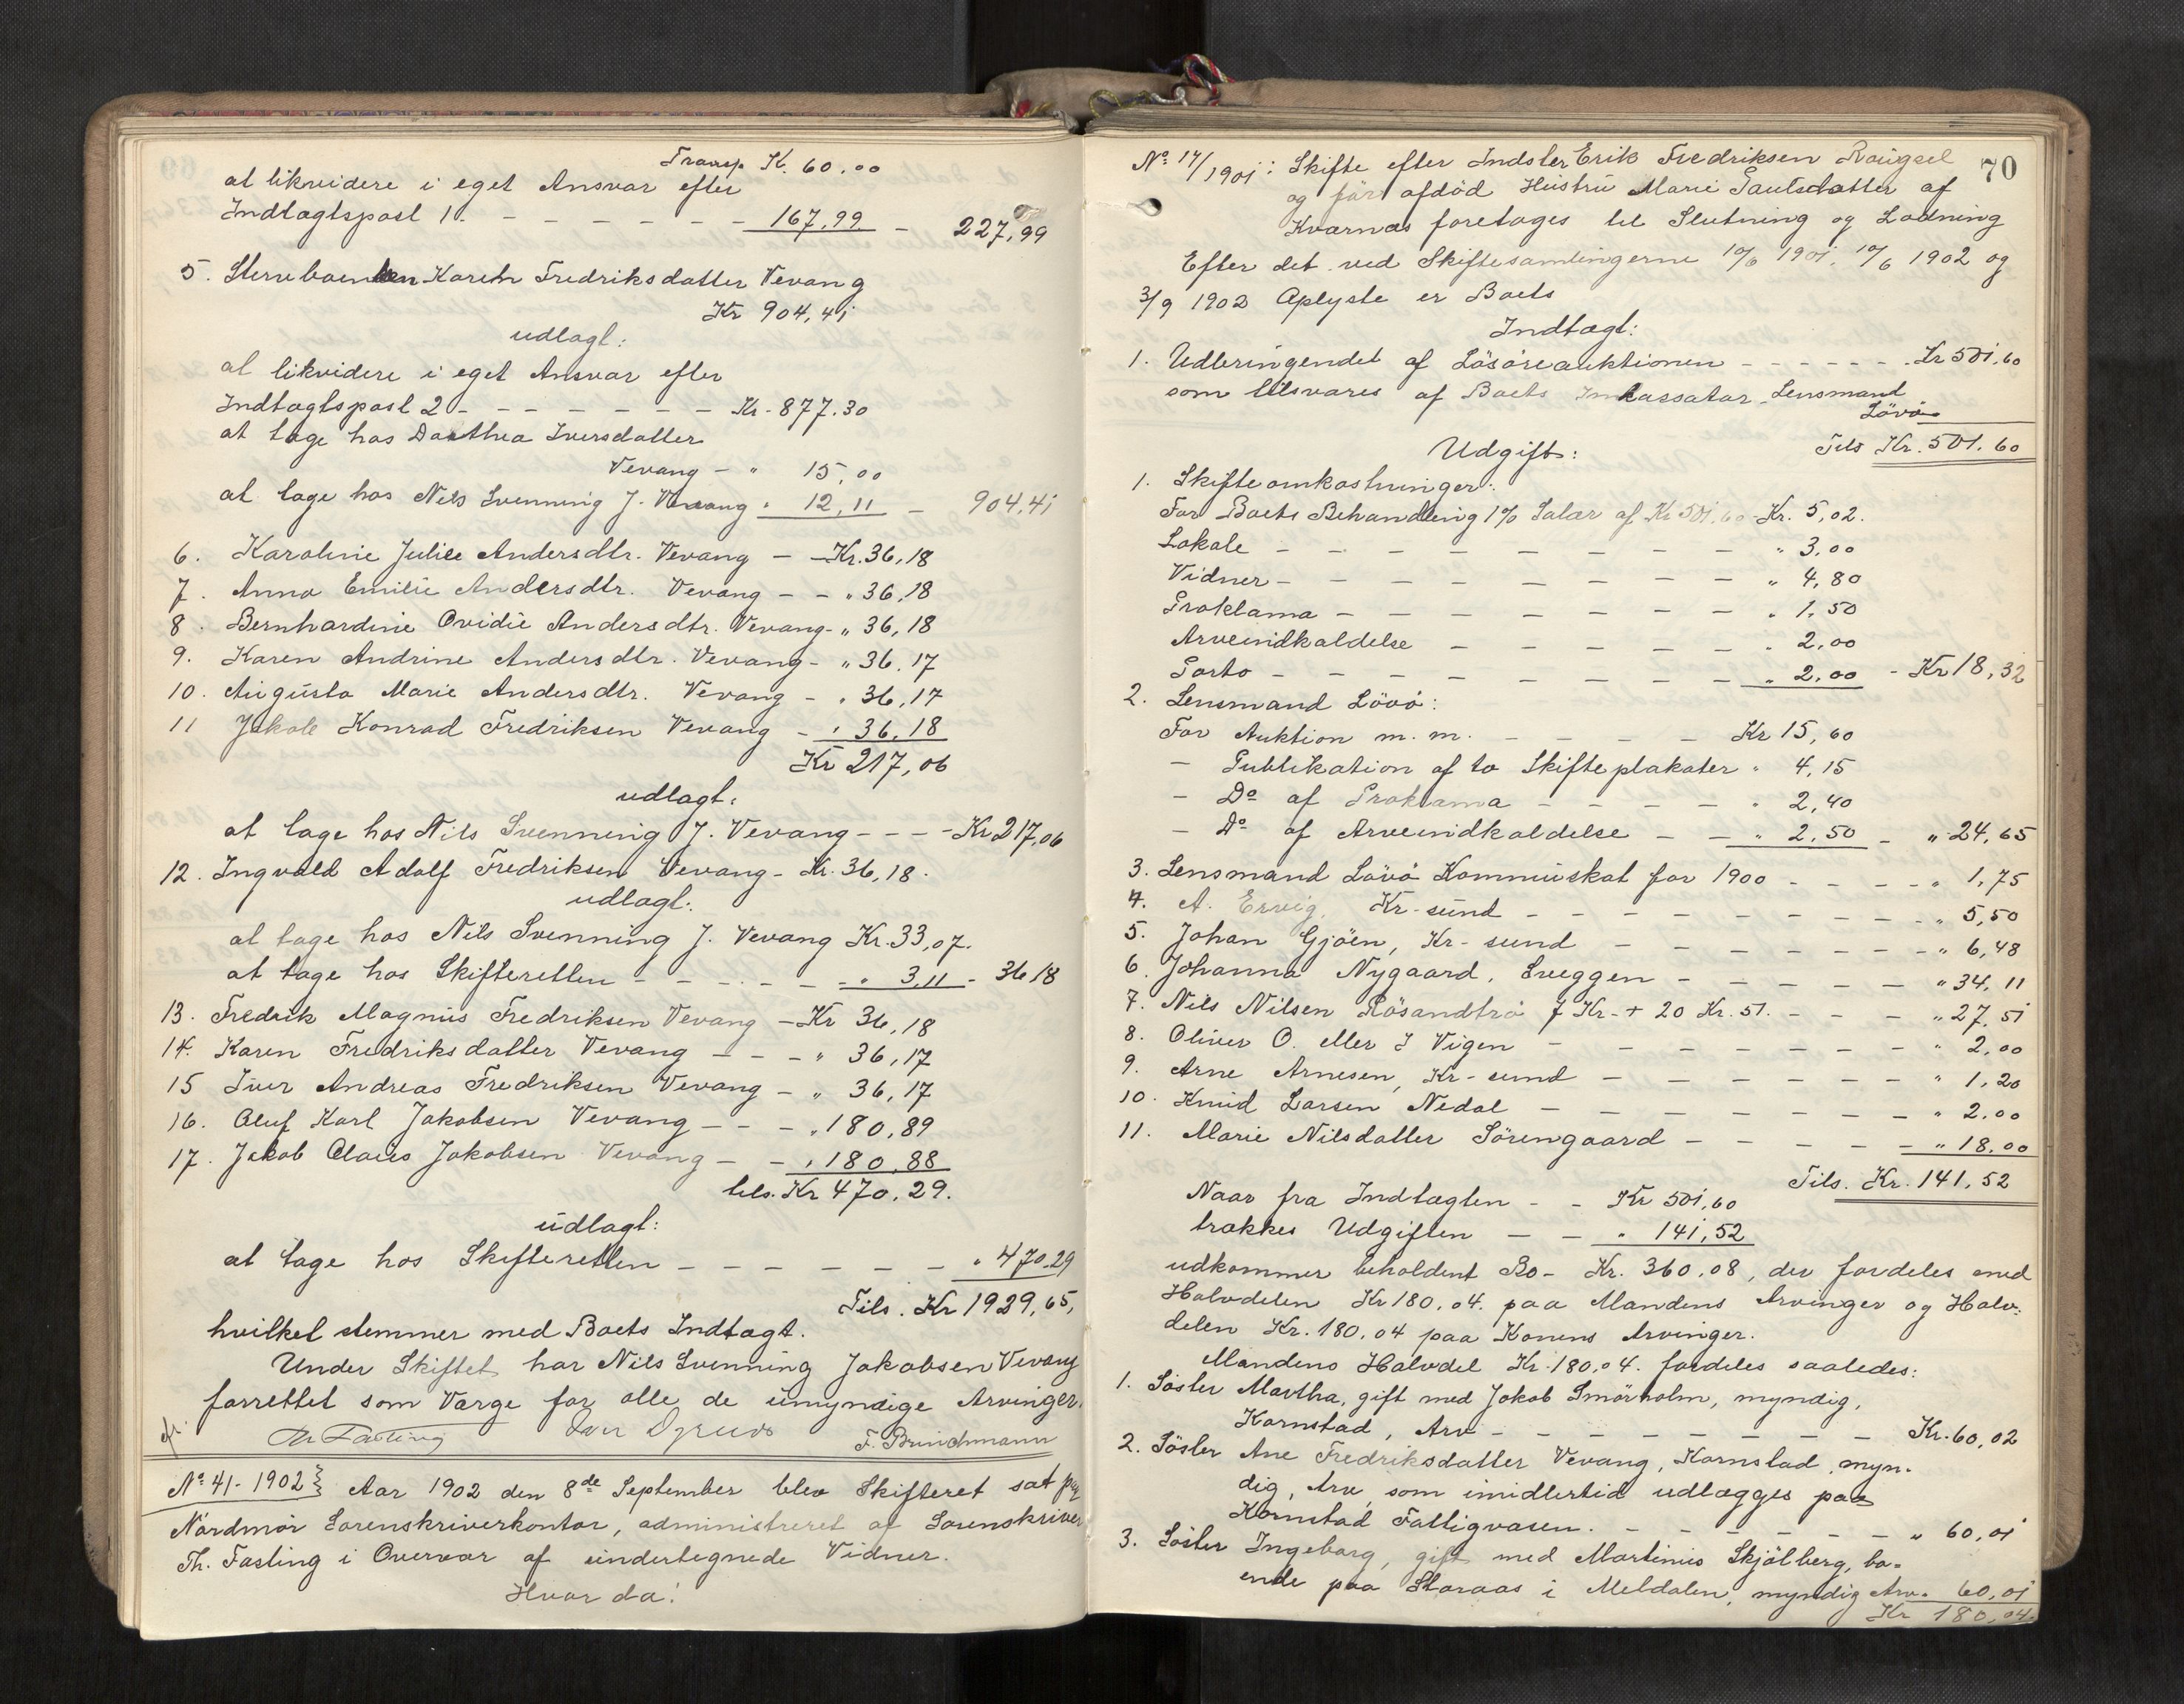 Transp K. 60.00
at likvidere i eget Ansvar efter
Indtægtspost 1. - - - - - - - 167,99. - 227,99
5. Karen Fredriksdatter Vevang
Kr 904,41
udlagt:
at likvidere i eget Ansvar efter
Indtægtspost 2 - - - - - - - Kr. 877.30
at tage hos Dorthea Iversdatter
Vevang - " 15,00
at tage hos Nils Svenning J. Vevang " 12,11 - 904,41
6. Karoline Julie Andersdtr. Vevang - - Kr. 36,18
7. Anna Emilie Andersdtr. Vevang - - " 36,18
8. Bernhardine Ovidie Andersdtr. Vevang - " 36,18
9. Karen Andrine Andersdtr. Vevang - " 36.17
10. Augusta Marie Andersdtr. Vevang - " 36,17
11 Jakob Konrad Fredriksen Vevang - " 36.18
Kr 217,06
udlagt:
at tage hos Nils Svenning J. Vevang - - - - Kr 217,06
12. Ingvald Adolf Fredriksen Vevang - Kr. 36,18.
udlagt:
at tage hos Nils Svenning J. Vevang Kr. 33,07.
at tage hos Skifteretten - - - - - - " 3,11 - 36 18
13. Fredrik Magnus Fredriksen Vevang - Kr 36,18
14. Karen Fredriksdatter Vevang - - - " 36,17
15 Iver Andreas Fredriksen Vevang - " 36,17
16. Oluf Karl Jakobsen Vevang - - - " 180,89
17. Jakob Olaus Jakobsen Vevang - - " 180,88
tils. Kr 470,29.
udlagt:
at tage hos Skifteretten - - - - - - - " 470.29
Tils. Kr 1929,65,
hvilket stemmer med Boets Indtægt.
Under Skiftet har Nils Svenning Jakobsen Vevang
forrettet som Værge for alle de umyndige Arvinger.
Th Fasting F. Brinchmann
No 41-1902 } Aar 1902 den 8de September blev Skifteret sat paa
Nordmør Sorenskriverkontor, administreret af Sorenskriver
Th. Fasting i Overvær af undertegnede Vidner.
Hvor da:
70
No 17/1901: Skifte efter Indster Erik Fredriksen
og før afdød Hustru Marie Paulsdatter af
Kvarnes foretages til Slutning og Lodning
Efter det ved Skiftesamlingerne 10/6 1901, 10/6 1902 og
3/9 1902 Oplyste er Boets
Indtægt:
1. Udbringendet af Løsøreauktionen - - - - - - Kr 501.60
som tilsvares af Boets Inkassator Lensmand
Løvø
Tils Kr. 501.60
Udgift:
1. Skifteomkostninger:
For Boets Behandling 1% Salær af Kr 501,60 - Kr. 5,02.
Lokale - - - - - - - - - " 3,00
Vidner - - - - - - - - - " 4,80
Proklama - - - - - - - - " 1,50
Arveindkaldelse - - - - - - " 2,00
Porto - - - - - - - - - " 2,00 - Kr 18,32
2. Lensmand Løvø:
For Auktion m. m. - - - - - Kr 15,60
- Publikation af to Skifteplakater " 4,15
- Do af Proklama - - - - - " 2,40
- Do af Arveindkaldelse - - " 2,50 - " 24,65
3. Lensmand Løvø Kommuskat for 1900 - - - - " 1,75
4. A. Ervig, Kr-sund - - - - - - - - - " 5,50
5. Johan Gjøen, Kr-sund - - - - - - - - " 6,48
6. Johanna Nygaard, Sveggen - - - - - - " 34,11
7. Nils Nilsen Røsandtrø 7 Kr. + 20 Kr. 51. - - - " 27,51
8. Oliver O. eller I Vigen - - - - - - - - " 2,00
9. Arne Arnesen, Kr-sund - - - - - - - " 1,20
10. Knud Larsen Nedal - - - - - - - - " 2,00
11. Marie Nilsdatter Sørengaard - - - - - " 18,00
Tils. Kr. 141,52
Naar fra Indtægten - - Kr 501,60
trækkes Udgiften - - " 141,52
udkommer beholdent Bo - Kr. 360.08, der fordeles med
Halvdelen Kr 180,04. paa Mandens Arvinger og Halv-
delen Kr. 180,04 paa Konens Arvinger.
Mandens Halvdel Kr. 180,04. fordeles saaledes:
1. Søster Martha, gift med Jakob Smørholm, myndig,
Kornstad, Arv - - - - - - - - - Kr. 60,02
2. Søster Ane Fredriksdatter Vevang, Kornstad, myn-
dig, Arv, som imidlertid udlægges paa
Kornstad Fattigvæsen. - - - - - - - " 60,01
3. Søster Ingeborg, gift med Martinus Skjølberg, bo-
ende paa Storaas i Meldalen, myndig Arv. 60,01
Kr 180,04.